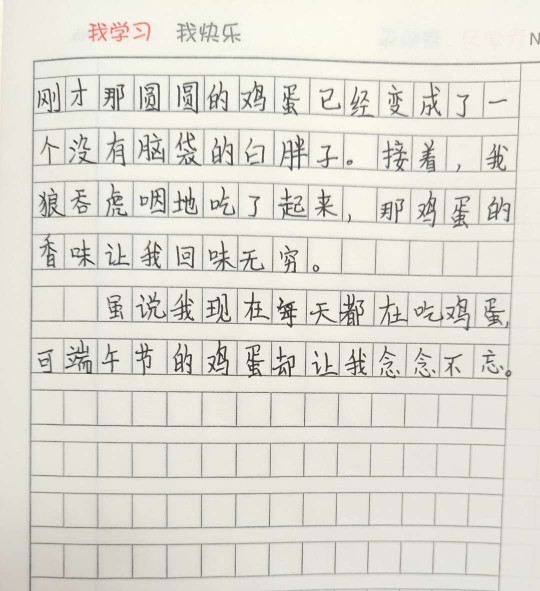 我学习 我快乐
刚才那圆圆的鸡蛋已经变成了一
个没有脑袋的白胖子。接着，我
狼吞虎咽地吃了起来，那鸡蛋的
香味让我回味无穷。
虽说我现在每天都在吃鸡蛋，
可端午节的鸡蛋却让我念念不忘。
N